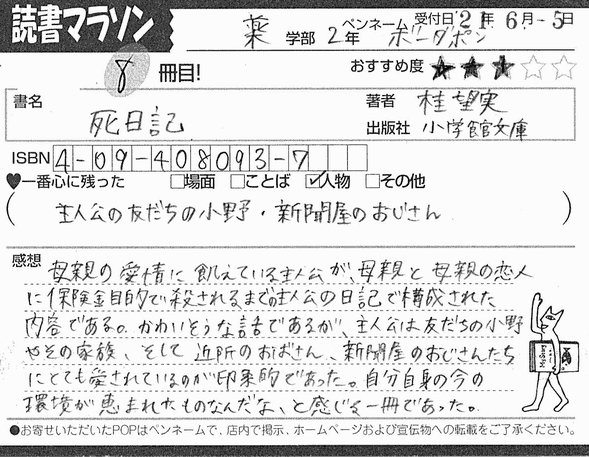 読書マラソン
薬 学部 2年 ペンネーム ボーダポン 受付日 '21年 6月-5日
8 冊目!
おすすめ度 ★★★☆☆
書名 死日記
著者 桂望実
出版社 小学館文庫
ISBN 4-09-408093-7
♥一番心に残った □場面 □ことば ☑人物 □その他
( 主人公の友だちの小野・新聞屋のおじさん )
感想 母親の愛情に飢えている主人公が、母親と母親の恋人
に保険金目的で殺されるまでの主人公の日記で構成された
内容である。かわいそうな話であるが、主人公は友だちの小野
やその家族、そして近所のおばさん、新聞屋のおじさんたち
にとても愛されているのが印象的であった。自分自身の今の
環境が恵まれたものなんだな、と感じる一冊であった。
●お寄せいただいたPOPはペンネームで、店内で掲示、ホームページおよび宣伝物への転載をご了承ください。